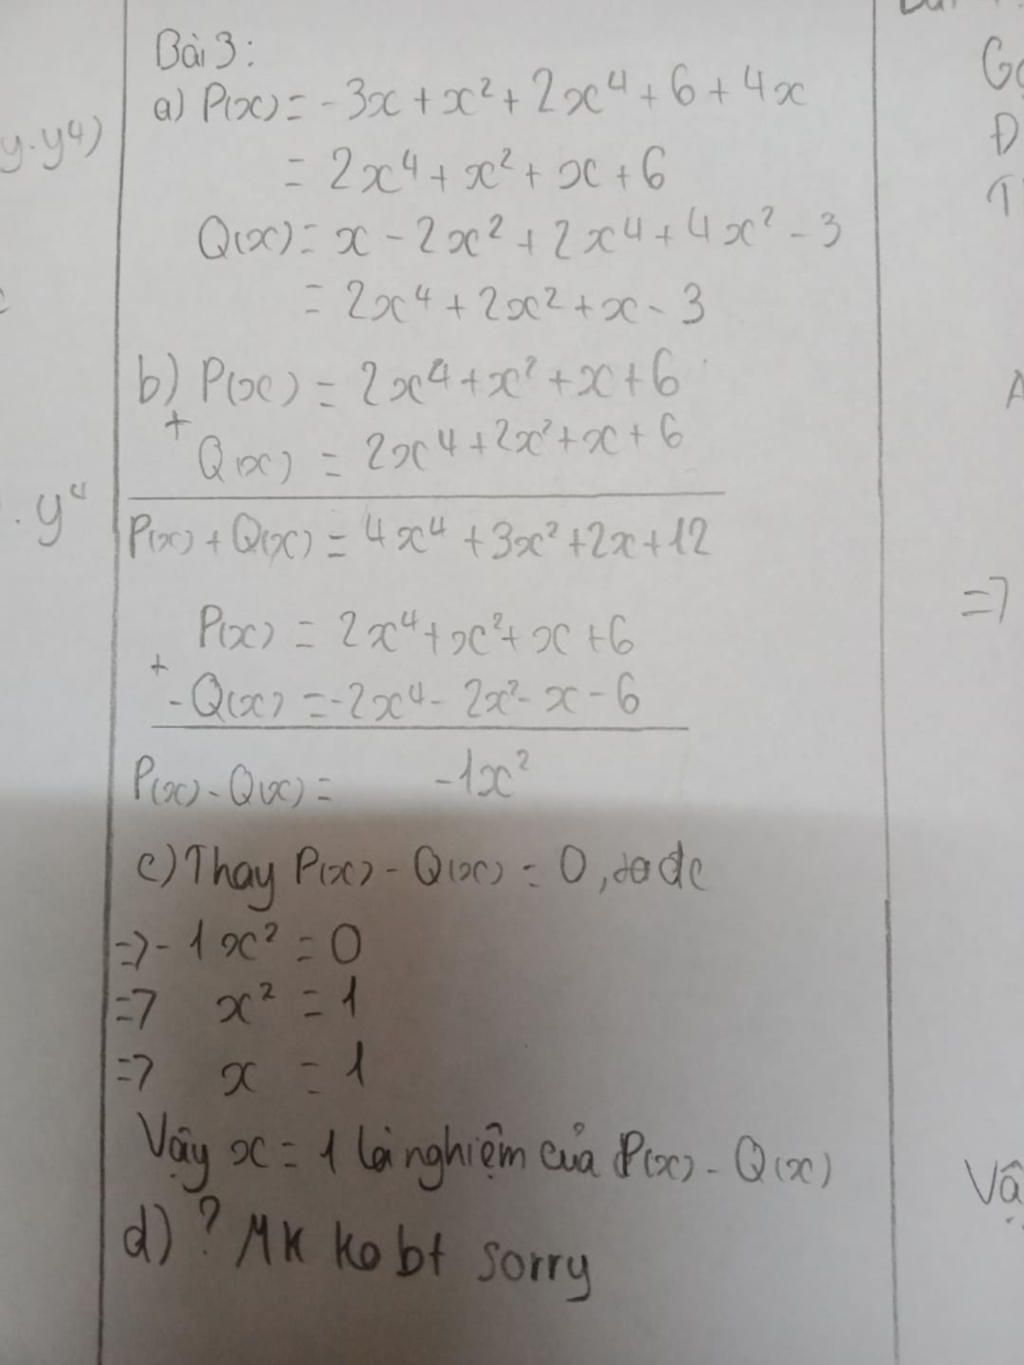 Bài 3:
a) P(x) = -3x + x² + 2x⁴ + 6 + 4x
= 2x⁴ + x² + x + 6
Q(x) = x - 2x² + 2x⁴ + 4x² - 3
= 2x⁴ + 2x² + x - 3
b) P(x) = 2x⁴ + x² + x + 6
+
Q(x) = 2x⁴ + 2x² + x + 6
P(x) + Q(x) = 4x⁴ + 3x² + 2x + 12
P(x) = 2x⁴ + x² + x + 6
+
- Q(x) = -2x⁴ - 2x² - x - 6
P(x) - Q(x) = -1x²
c) Thay P(x) - Q(x) = 0, ta đc
=> -1x² = 0
=> x² = 1
=> x = 1
Vậy x = 1 là nghiệm của P(x) - Q(x)
d) ? MK ko bt sorry
y.y⁴)
. y⁴
Đ
T
A
=>
Vậ